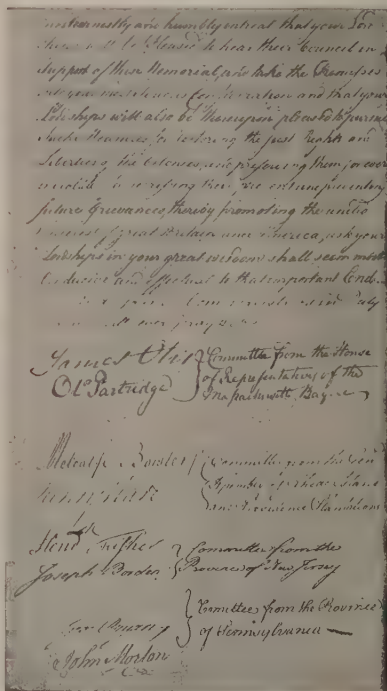 most earnestly and humbly entreat that your Lord
will be pleased to hear their Council in
Support of these Memorial, and take the Premises
into your consideration and that your
Lordships will also be thereupon pleased to pursue
such Measures for restoring the just Rights and
Liberties the Colonies, and preserving them for ever
inviolate redressing their present preventing
future Grievances, thereby promoting the united
Interest of Great Britain and America, as to your
Lordships in your great wisdom shall seem most
Conducive and effectual to that important End.
pray
James Otis
Committee from the House
Ol. Partridge
of Representatives of the
Massachusetts Bay
Metcalf Bowler
Committee from the
Henry Ward
Rhode Island
and Providence Plantations
Hend Fisher
Committee from the
Joseph Borden
Province of New Jersey
Committee from the Province
of Pennsylvania
John Morton